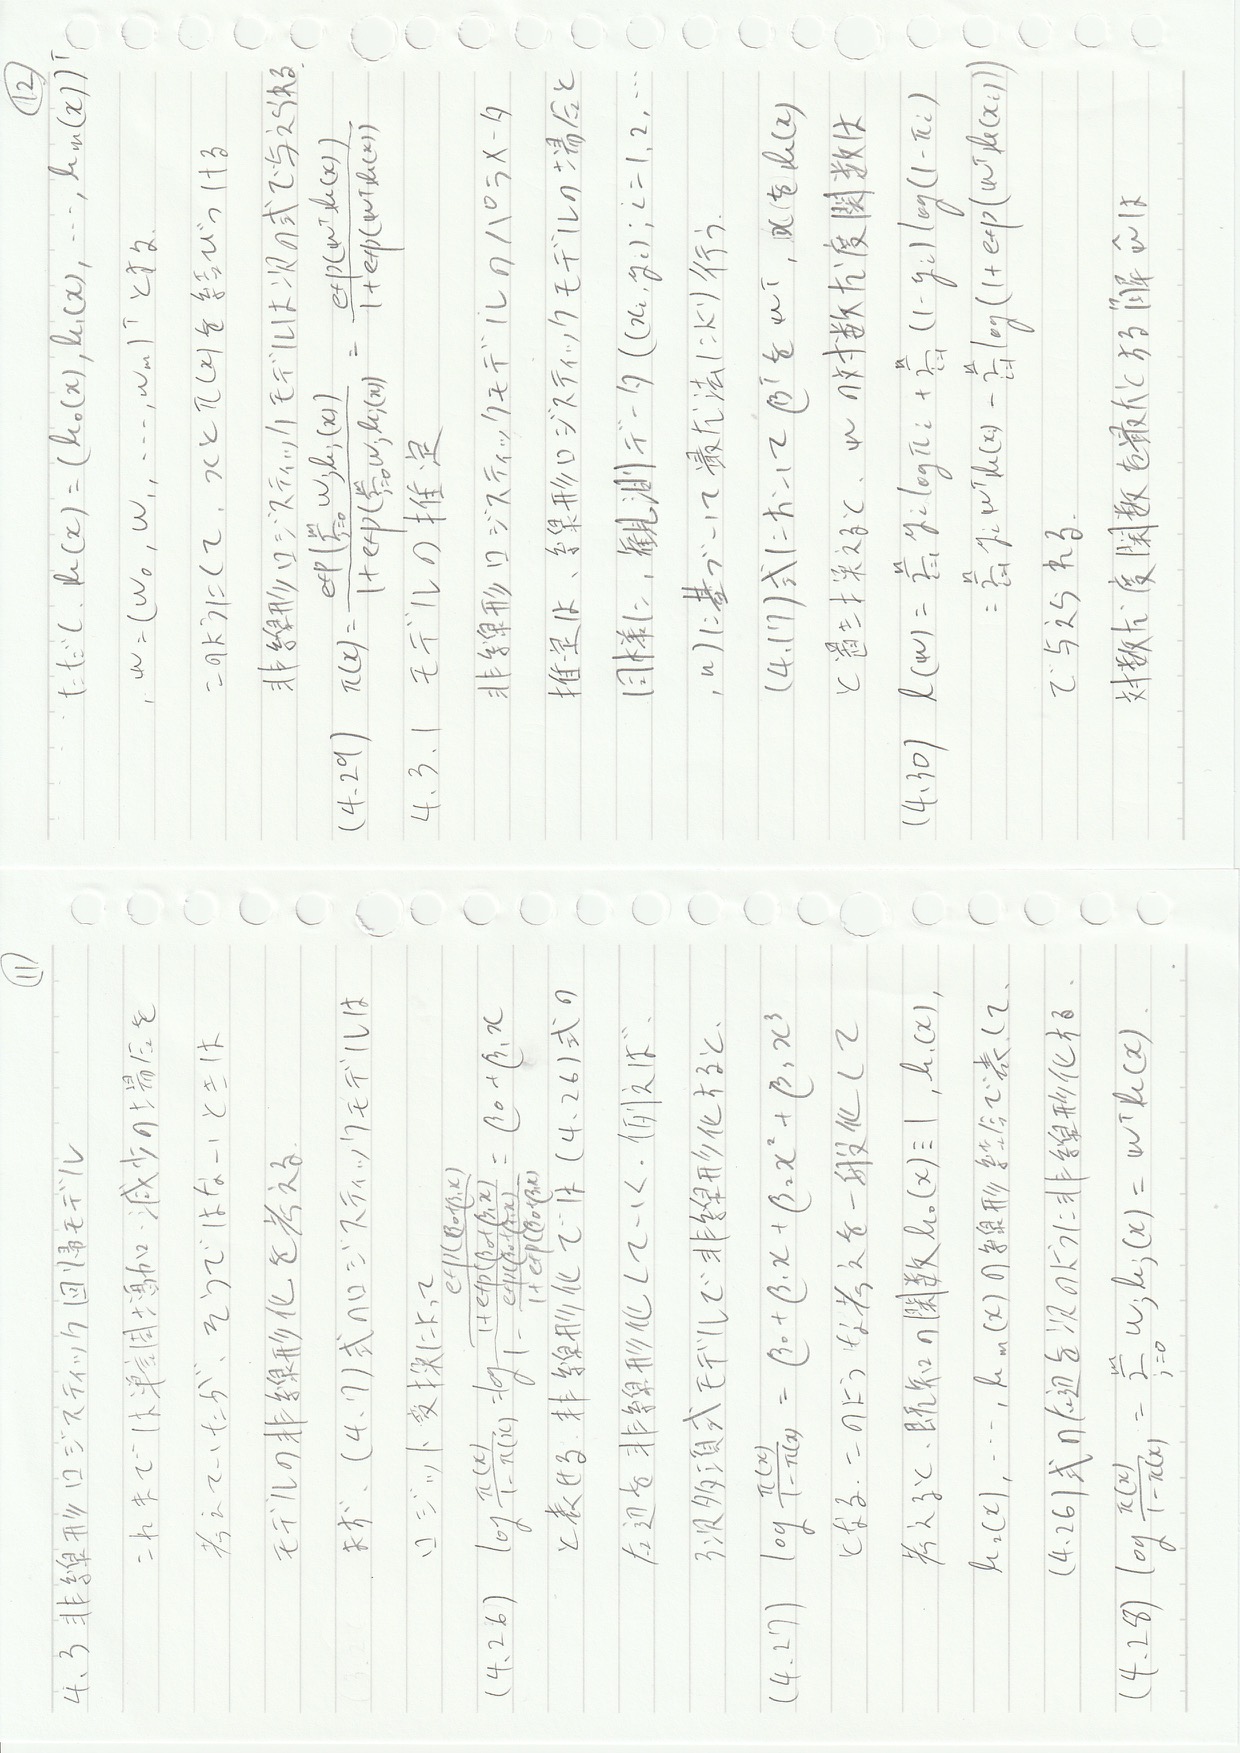 ⑪
4.3 非線形ロジスティック回帰モデル
これまでは単調増加・減少の場合を
考えていたが、そうではないときは
モデルの非線形化を考える.
まず、(4.7)式のロジスティックモデルは
ロジット変換によって
(4.26) log π(x)/(1-π(x)) = log [exp(β₀+β₁x)/(1+exp(β₀+β₁x))]/[1 - exp(β₀+β₁x)/(1+exp(β₀+β₁x))] = β₀+β₁x
と表せる. 非線形化では(4.26)式の
右辺を非線形化していく. 例えば、
3次多項式モデルで非線形化すると、
(4.27) log π(x)/(1-π(x)) = β₀+β₁x+β₂x²+β₃x³
となる. このような考えを一般化して
考えると、既知の関数h₀(x)≡1, h₁(x),
h₂(x), ..., hm(x)の線形結合で表して、
(4.26)式の右辺を次のように非線形化する.
(4.28) log π(x)/(1-π(x)) = Σ_{j=0}^{m} wⱼhⱼ(x) = wᵀh(x).
⑫
ただし、h(x) = (h₀(x), h₁(x), ..., hm(x))ᵀ
, w = (w₀, w₁, ..., wm)ᵀ とする.
このようにして、xとπ(x)を結びつける
非線形ロジスティックモデルは次の式で与えられる.
(4.29) π(x) = exp(Σ_{j=0}^{m} wⱼhⱼ(x))/(1+exp(Σ_{j=0}^{m} wⱼhⱼ(x))) = exp(wᵀh(x))/(1+exp(wᵀh(x)))
4.3.1 モデルの推定
非線形ロジスティックモデルのパラメータ
推定は、線形ロジスティックモデルの場合と
同様に, 観測データ((xᵢ, yᵢ); i=1, 2, ...
, n)に基づいて最尤法により行う.
(4.17)式においてβᵀをwᵀ, xをh(x)
と置き換えると、wの対数尤度関数は
(4.30) l(w) = Σ_{i=1}^{n} yᵢ log πᵢ + Σ_{i=1}^{n} (1-yᵢ) log(1-πᵢ)
= Σ_{i=1}^{n} yᵢ wᵀh(xᵢ) - Σ_{i=1}^{n} log(1+exp(wᵀh(xᵢ)))
で与えられる.
対数尤度関数を最大とする解ŵは